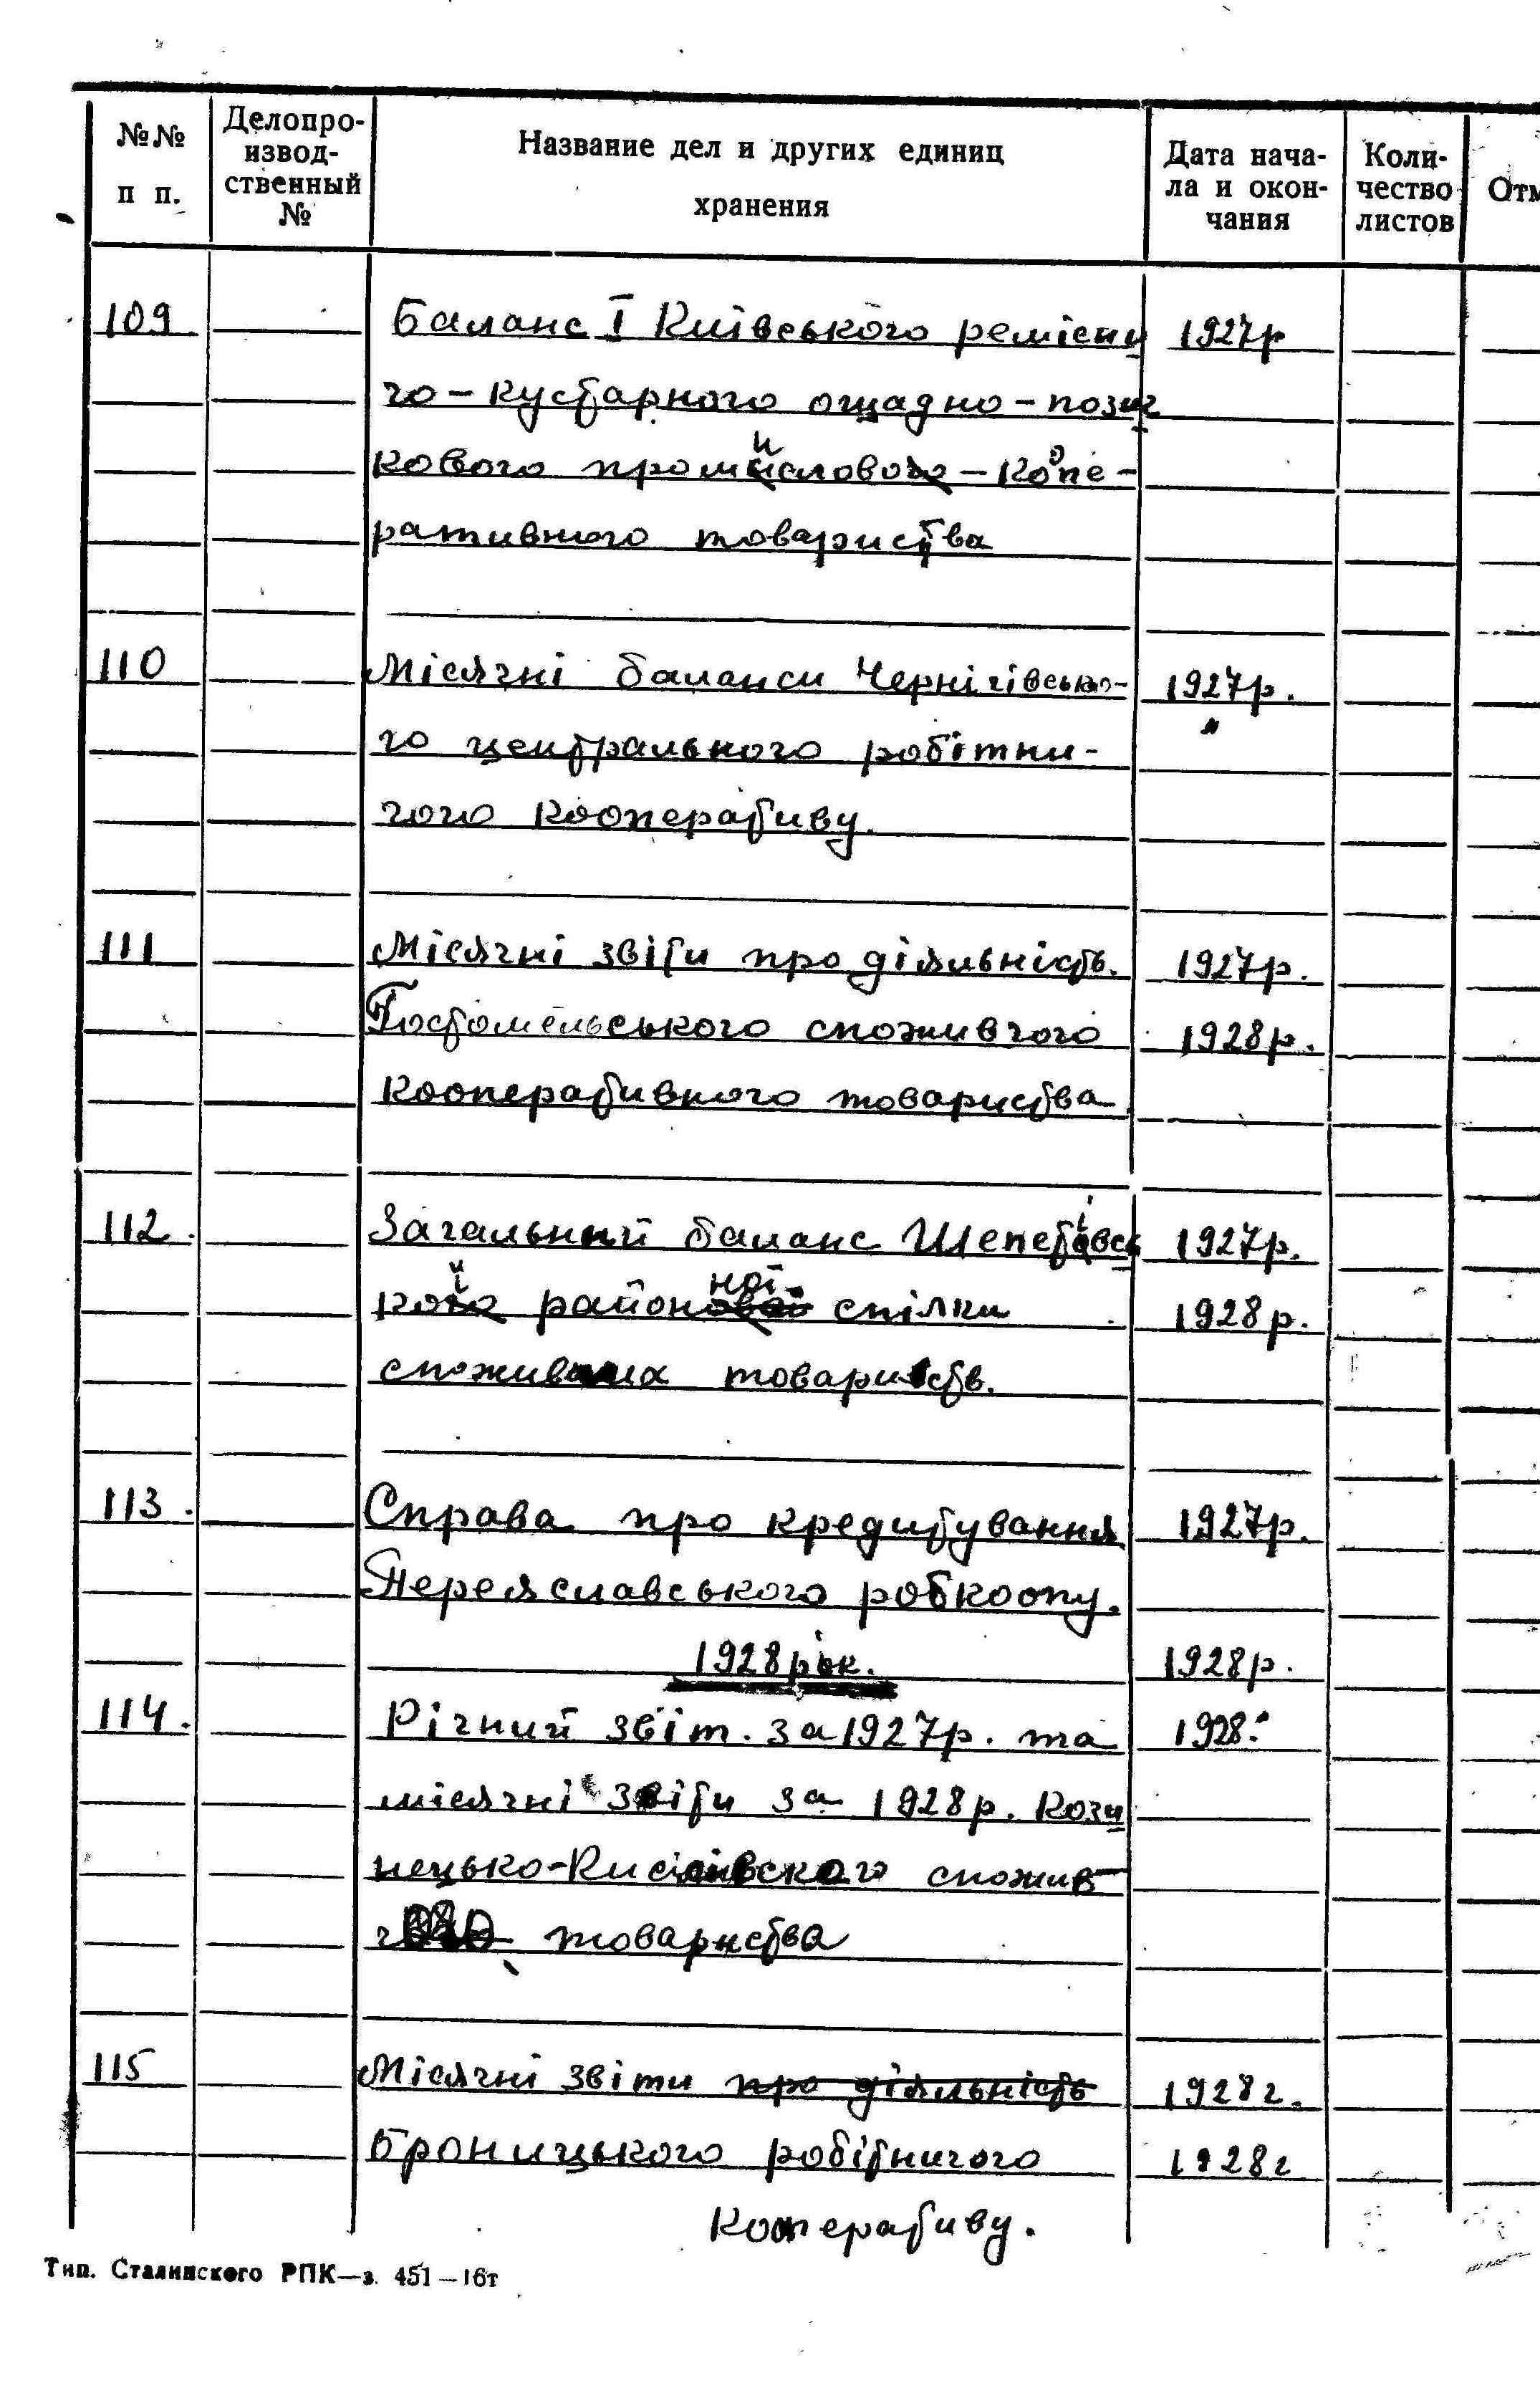 №№ п п.
Делопро-
извод-
ственный
№
Название дел и других единиц
хранения
Дата нача-
ла и окон-
чания
Коли-
чество
листов
Отм
109. Баланс I Київського ремісни 1927р
чо-кустарного ощадно-позич
кового промислового-коопе-
ративного товариства
110 Місячні баланси Чернігівсько- 1927р.
го центрального робітни- "
чого кооперативу.
111 Місячні звіти про діяльність. 1927р.
Гостомельського споживчого 1928р.
кооперативного товариства
112. Загальний баланс Шепетівсь 1927р.
кої районної спілки 1928р.
споживчих товариств.
113. Справа про кредитування 1927р.
Переяславського робкоопу.
1928рік. 1928р.
114. Річний звіт. за 1927р. та 1928."
місячні звіти за 1928р. Кози
нецько- спожив
товариства
115 Місячні звіти про діяльність 1928г.
Броницького робітничого 1928г
Кооперативу.
Тип. Сталинского РПК—з. 451—16т